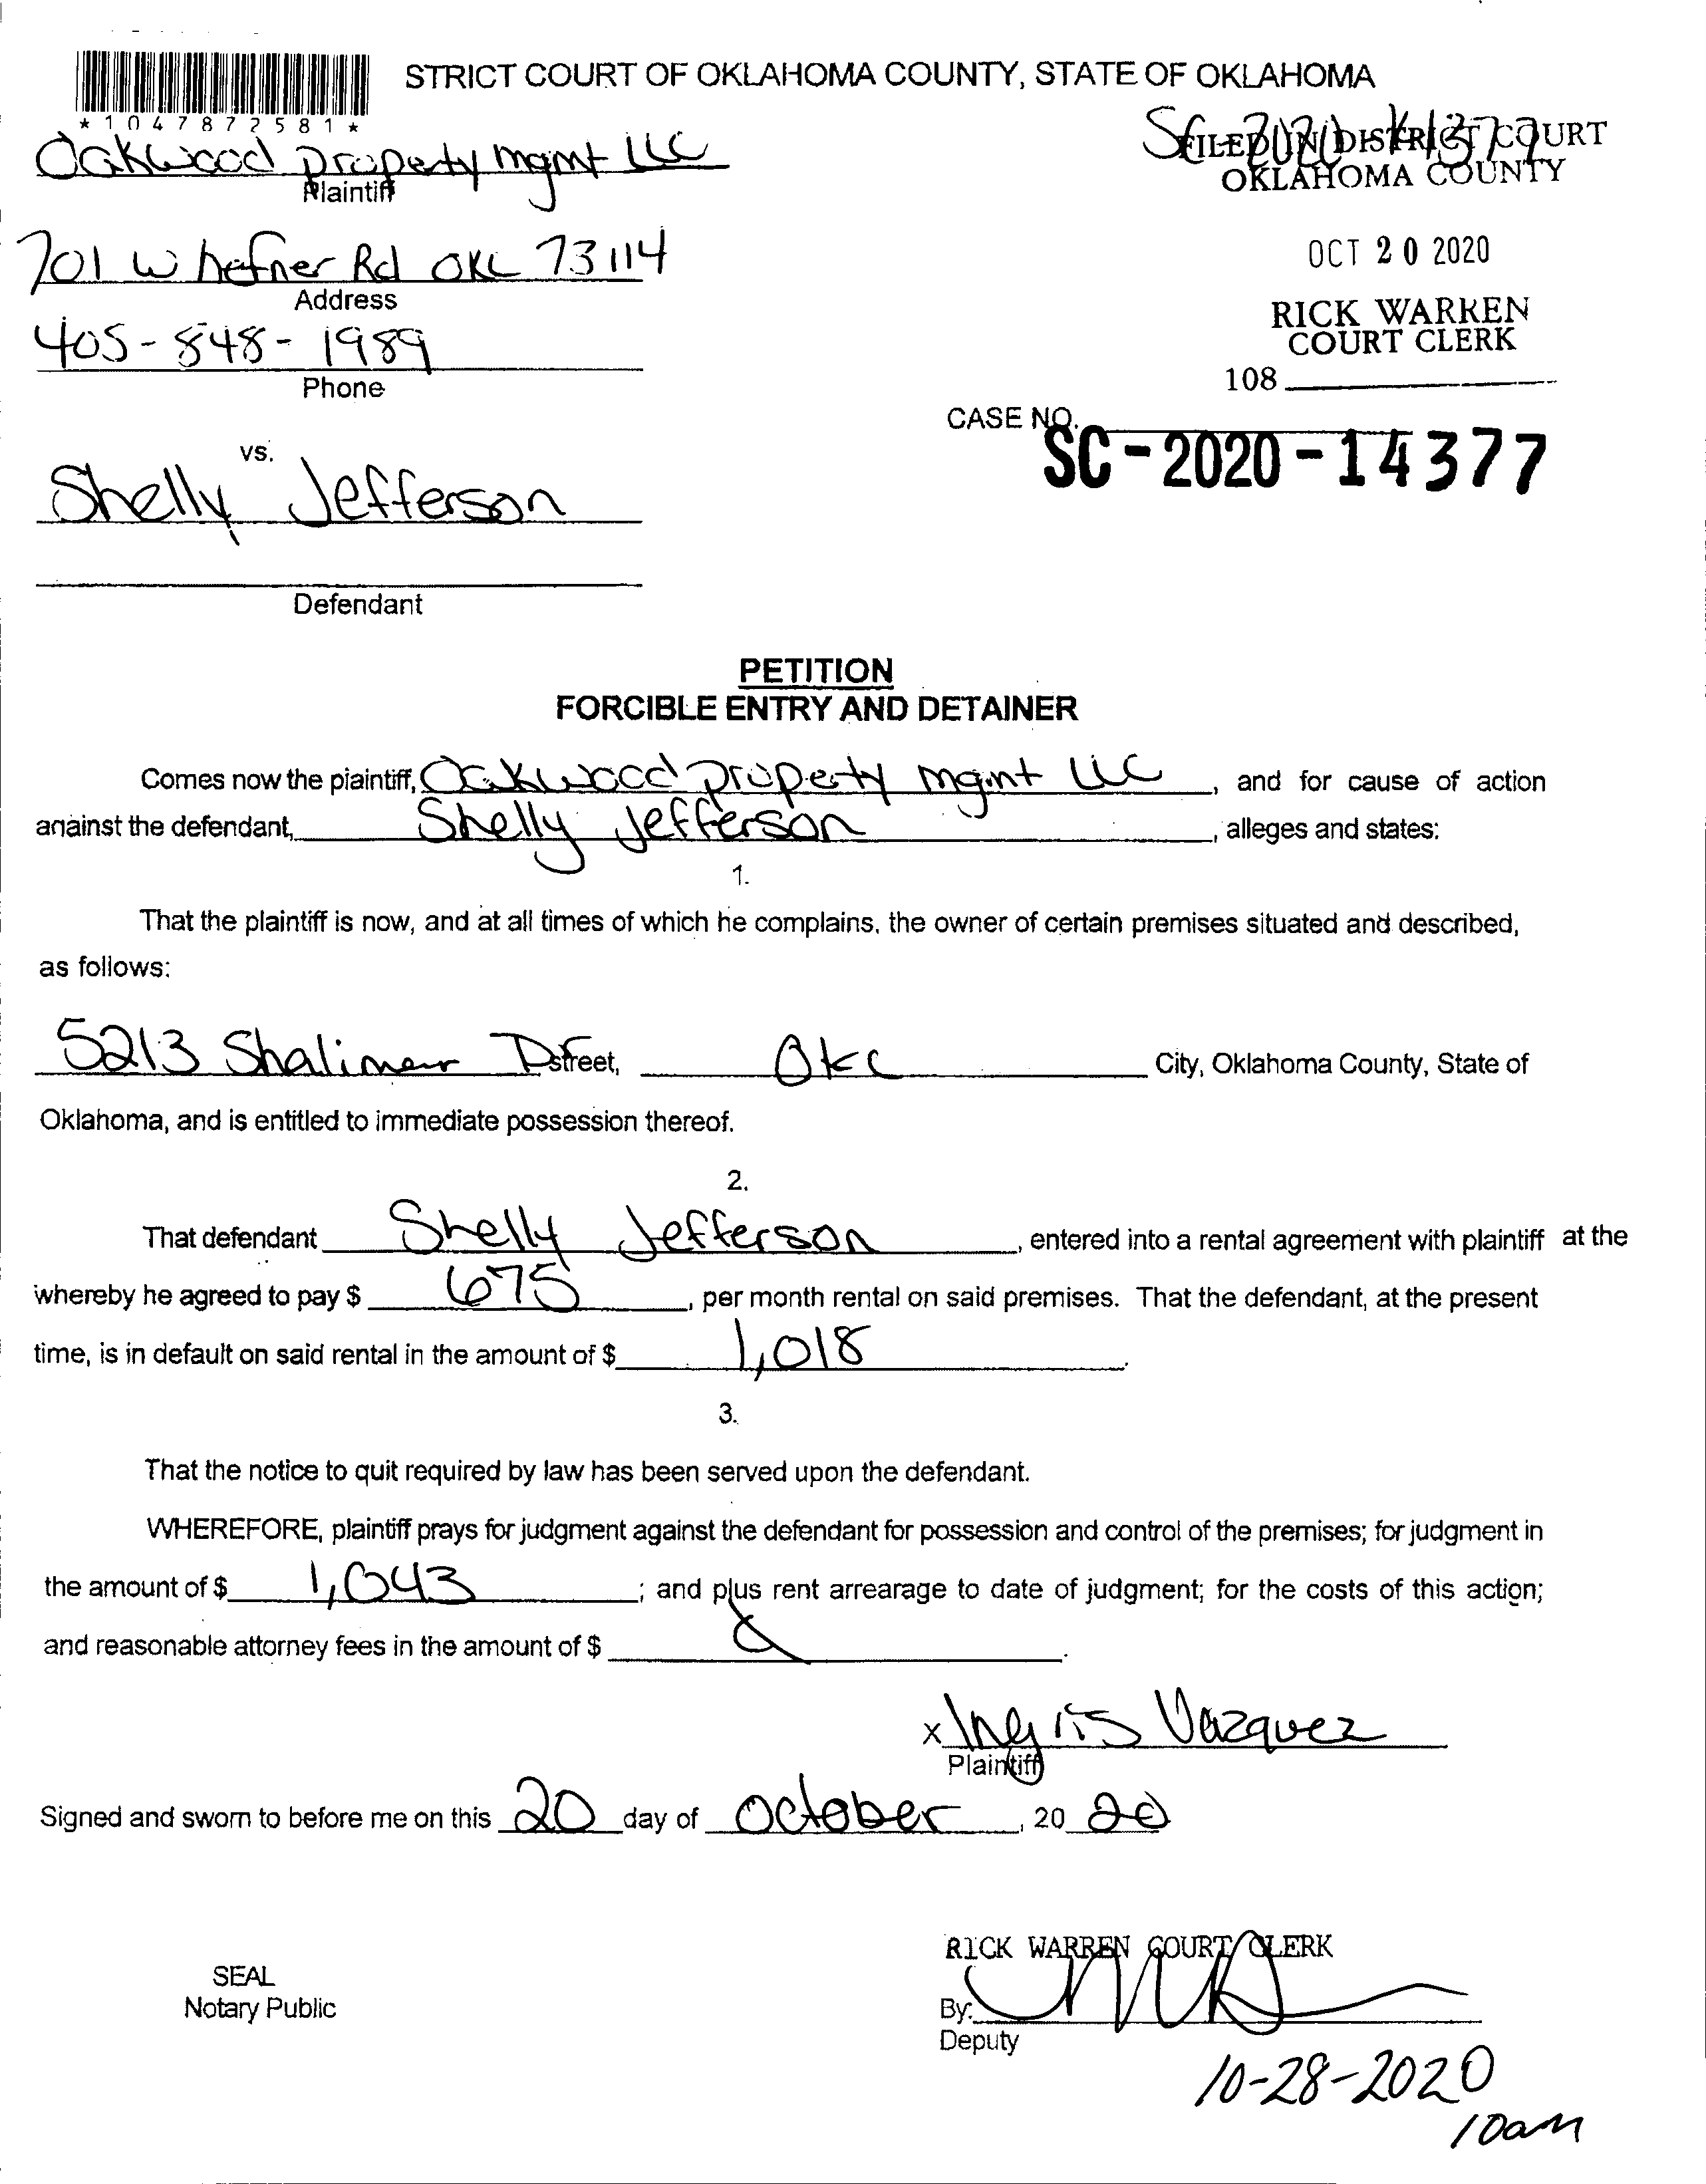 STRICT COURT OF OKLAHOMA COUNTY, STATE OF OKLAHOMA
*1047872581*
Oakwood property mgmt LLC
Plaintiff
FILED IN DISTRICT COURT
OKLAHOMA COUNTY
701 W hefner Rd OKC 73114
Address
OCT 20 2020
405-848-1989
Phone
RICK WARREN
COURT CLERK
108
CASE NO.
SC-2020-14377
vs.
Shelly Jefferson
Defendant
PETITION
FORCIBLE ENTRY AND DETAINER
Comes now the plaintiff, Oakwood property mgmt LLC, and for cause of action
against the defendant, Shelly Jefferson, alleges and states:
1.
That the plaintiff is now, and at all times of which he complains, the owner of certain premises situated and described,
as follows:
5213 Shalimar Dr street, Okc City, Oklahoma County, State of
Oklahoma, and is entitled to immediate possession thereof.
2.
That defendant Shelly Jefferson, entered into a rental agreement with plaintiff at the
whereby he agreed to pay $ 675, per month rental on said premises. That the defendant, at the present
time, is in default on said rental in the amount of $ 1,018.
3.
That the notice to quit required by law has been served upon the defendant.
WHEREFORE, plaintiff prays for judgment against the defendant for possession and control of the premises; for judgment in
the amount of $ 1,043; and plus rent arrearage to date of judgment; for the costs of this action;
and reasonable attorney fees in the amount of $ .
x Ingris Vazquez
Plaintiff
Signed and sworn to before me on this 20 day of October, 20 20
RICK WARREN COURT CLERK
SEAL
Notary Public
By:
Deputy
10-28-2020
10am